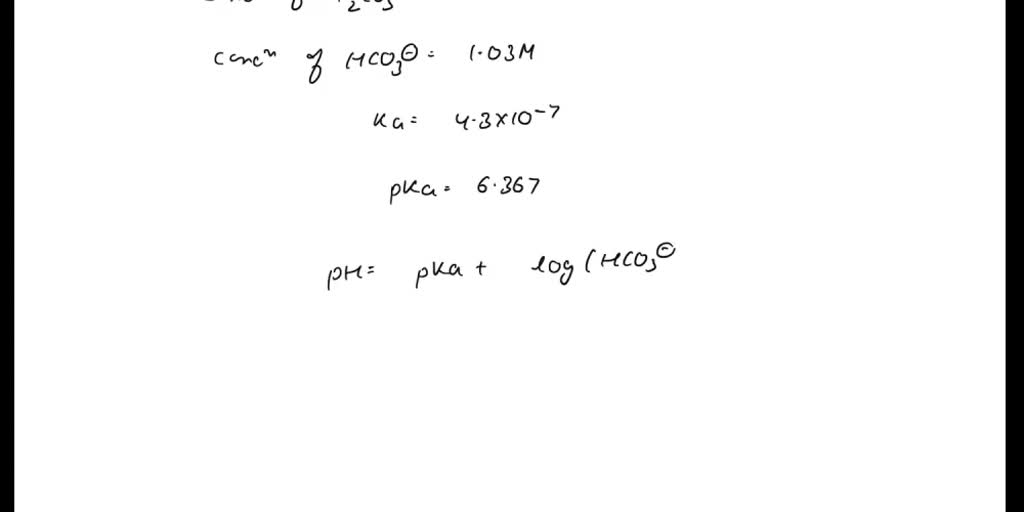 H₂CO₃
concⁿ of HCO₃⊖ = 1.03M
Ka = 4.3×10⁻⁷
pKa = 6.367
pH = pKa + log (HCO₃⊖